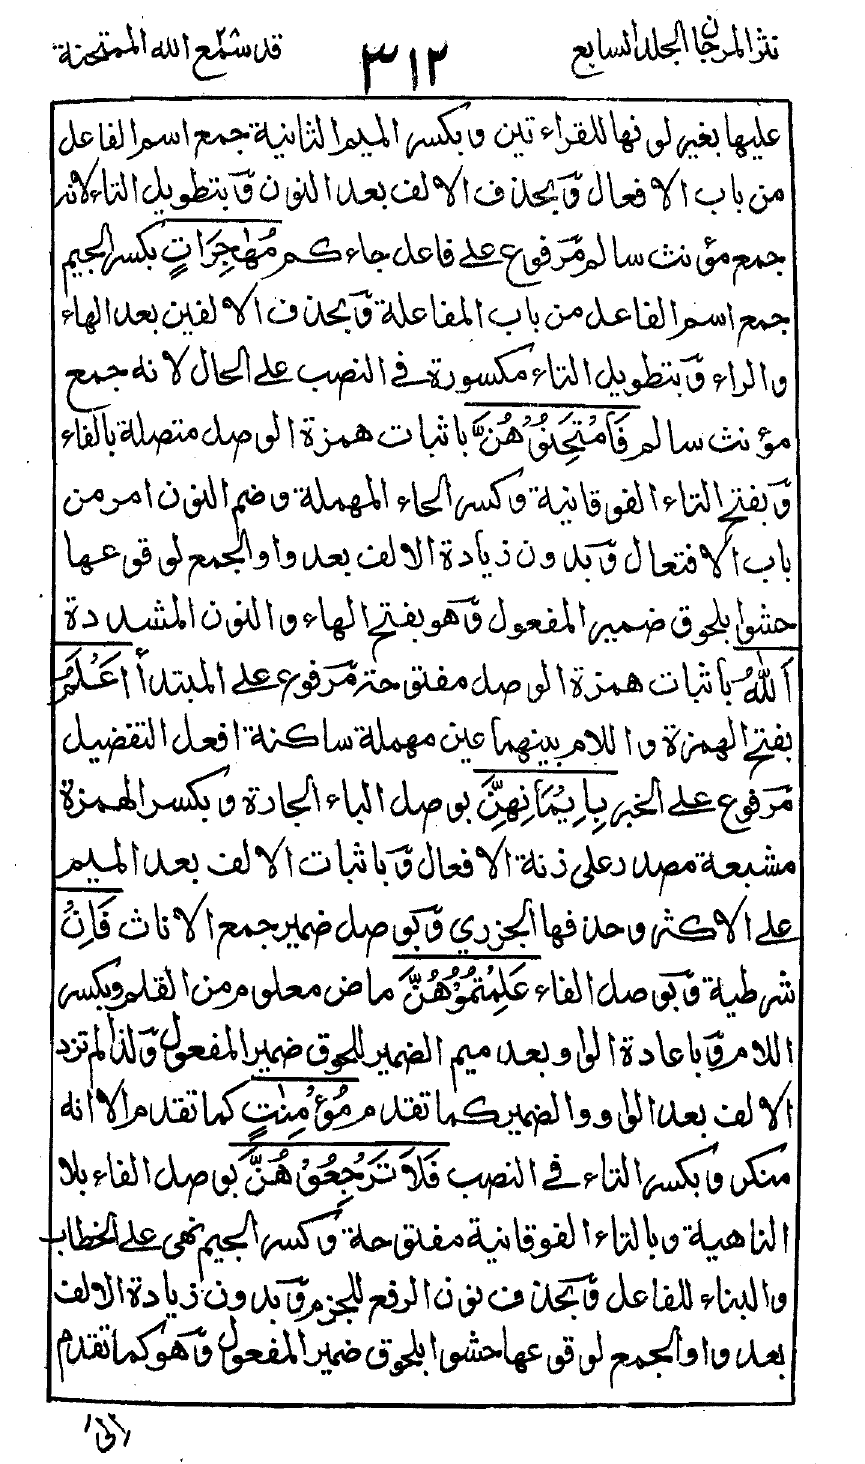 نثر المرجان الجلد السابع
٣١٢
قد سمع الله الممتحنة
عليها بغير لونها للقراءتين وَبكسر الميم الثانية جمع اسم الفاعل
من باب الافعال وَبحذف الالف بعد النون وَبتطويل التاء لانه
جمع مؤنث سالم مَرفوع على فاعل جاءكم مُهٰجِرَاتٍ بكسر الجيم
جمع اسم الفاعل من باب المفاعلة وَبحذف الالفين بعد الهاء
والراء وَبتطويل التاء مكسورة في النصب على الحال لانه جمع
مؤنث سالم فَامْتَحِنُوْهُنَّ باثبات همزة الوصل متصلة بالفاء
وَبفتح التاء الفوقانية وَكسر الحاء المهملة وضم النون امر من
باب الافتعال وَبدون زيادة الالف بعد واو الجمع لوقوعها
حشوا بلحوق ضمير المفعول وَهو بفتح الهاء والنون المشددة
اَللّٰهُ باثبات همزة الوصل مفتوحة مَرفوع على المبتدأ اَعْلَمُ
بفتح الهمزة واللام بينهما عين مهملة ساكنة افعل التفضيل
مَرفوع على الخبر بِاِيْمَانِهِنَّ بوصل الباء الجارة وَبكسر الهمزة
مشبعة مصدر على زنة الافعال وَباثبات الالف بعد الميم
على الاكثر وحذفها الجزري وَبوصل ضمير جمع الاناث فَاِنْ
شرطية وَبوصل الفاء عَلِمْتُمُوْهُنَّ ماض معلوم من القلم وبكسر
اللام وَباعادة الواو بعد ميم الضمير للحوق ضمير المفعول وَلذا لم تزد
الالف بعد الواو والضمير كما تقدم مُؤْمِنٰتٍ كما تقدم الا انه
منكر وَبكسر التاء في النصب فَلَا تَرْجِعُوْهُنَّ بوصل الفاء بلا
الناهية وبالتاء الفوقانية مفتوحة وَكسر الجيم نهى على الخطاب
والبناء للفاعل وَبحذف نون الرفع للجزم وَبدون زيادة الالف
بعد واو الجمع لوقوعها حشوا بلحوق ضمير المفعول وَهو كما تقدم
الى